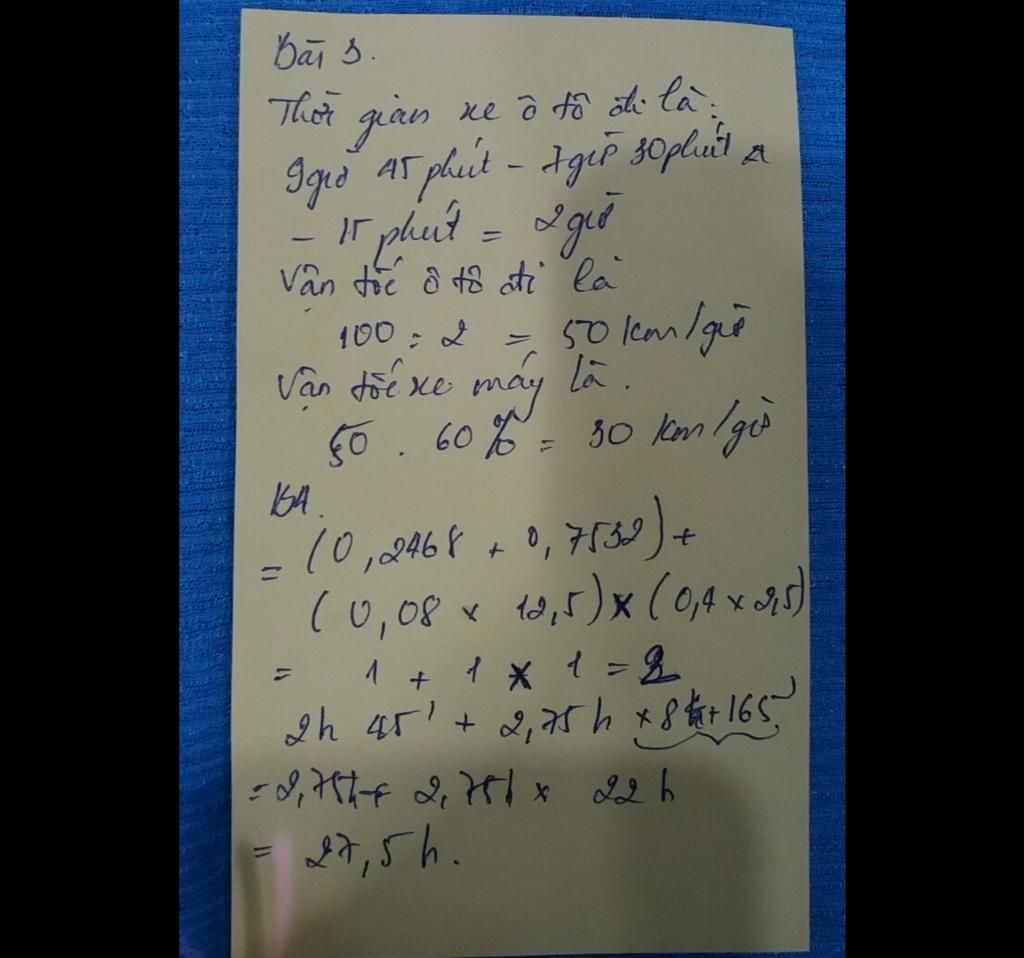 Bài 3.
Thời gian xe ô tô đi là:
9giờ 45 phút - 7giờ 30phút
- 15 phút = 2 giờ
Vận tốc ô tô đi là
100 : 2 = 50 km/giờ
Vận tốc xe máy là.
50 . 60% = 30 km/giờ
B4.
= (0,2468 + 0,7532) +
(0,08 x 12,5) x (0,4 x 2,5)
= 1 + 1 x 1 = 2
2h 45' + 2,75h x 8 + 165'
= 2,75h + 2,75h x 22 h
= 27,5 h.